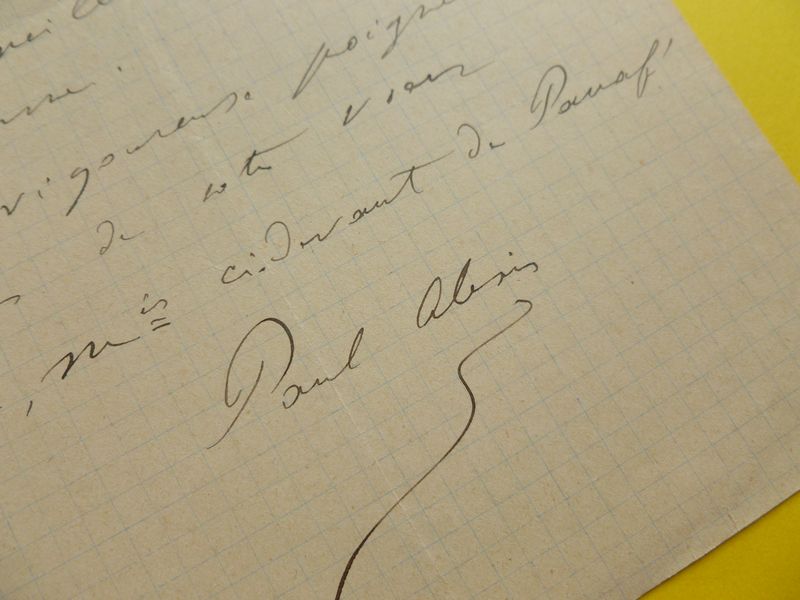 vigoureuse poigné
de votre vieux
, Mis ci-devant de Panaf!
Paul Alexis